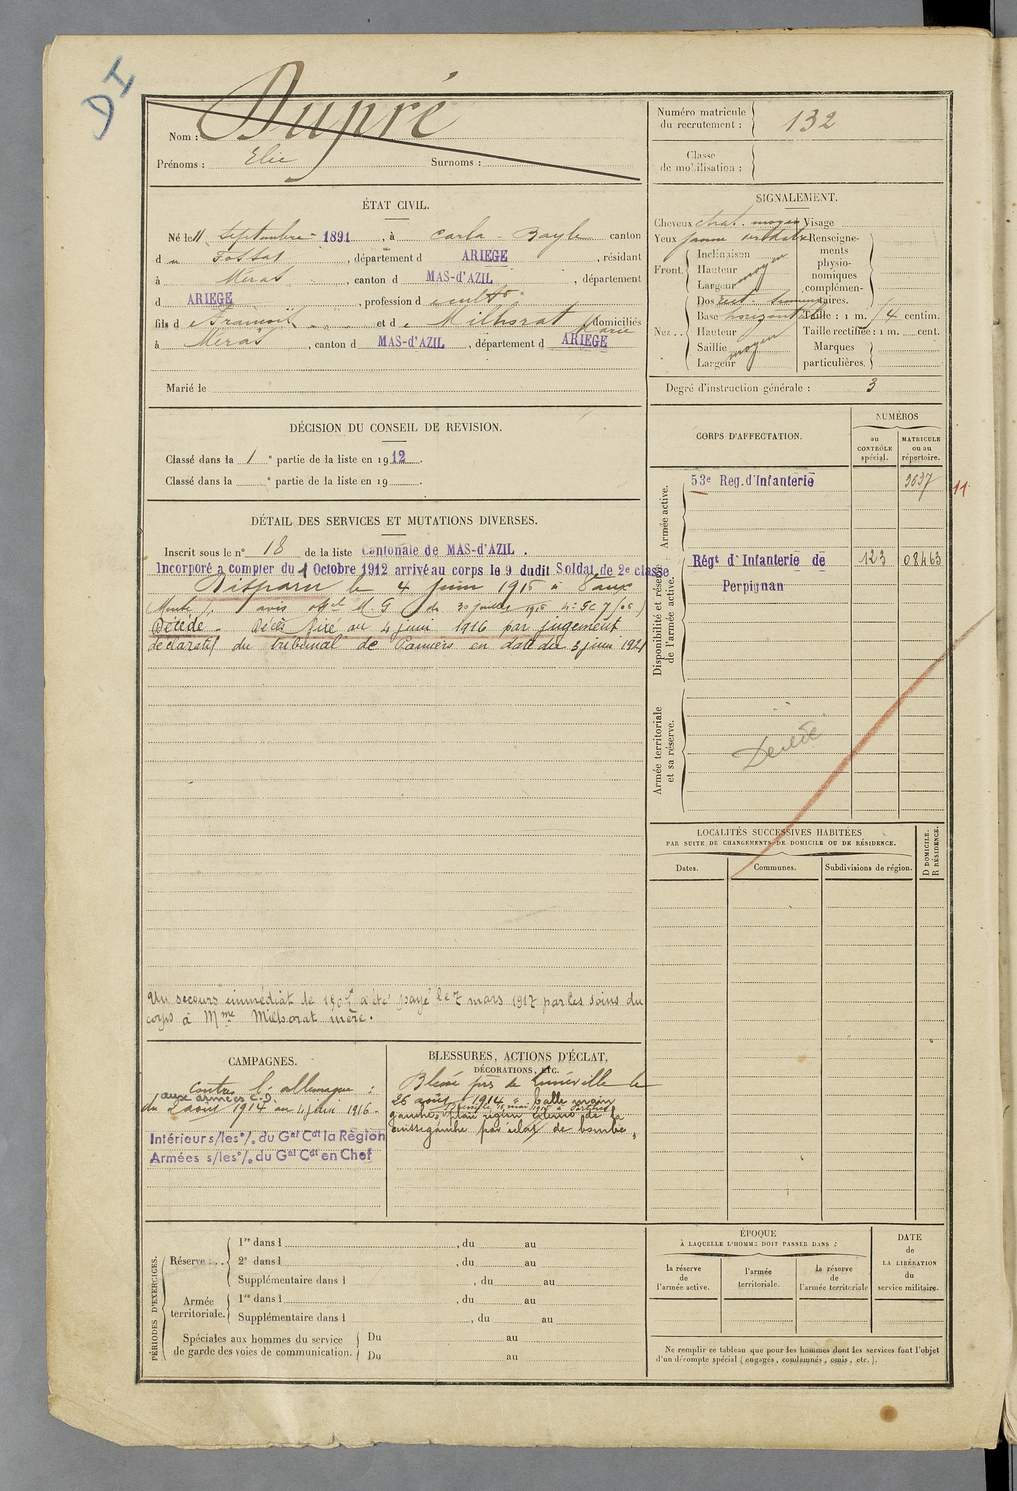 DI
Nom : Dupré
Prénoms : Elie Surnoms :
Numéro matricule du recrutement : 132
Classe de mobilisation :
ÉTAT CIVIL.
Né le 11 Septembre 1891, à Carla-Bayle canton
du Fossat, département d ARIEGE, résidant
à Méras, canton d MAS-d'AZIL, département
d ARIEGE, profession de cultr
fils de François et de Milhorat Marie domiciliés
à Méras, canton d MAS-d'AZIL, département d ARIEGE
Marié le
SIGNALEMENT.
Cheveux chat. moyen Visage
Yeux jaune verdatre Renseignements physionomiques complémentaires.
Front. Inclinaison
Hauteur moyen
Largeur
Nez.. Dos rect.
Base horizontale Taille : 1 m. 4 centim.
Hauteur Taille rectifiée : 1 m. cent.
Saillie moyen Marques particulières.
Largeur
Degré d'instruction générale : 3
DÉCISION DU CONSEIL DE REVISION.
Classé dans la 1e partie de la liste en 1912.
Classé dans la e partie de la liste en 19 .
DÉTAIL DES SERVICES ET MUTATIONS DIVERSES.
Inscrit sous le n° 18 de la liste Cantonale de MAS-d'AZIL .
Incorporé a compter du 1 Octobre 1912 arrivé au corps le 9 dudit Soldat de 2e classe
Disparu le 4 juin 191 à Vaux
avis M. G du 30 juillet 1916
Décédé. Décès fixé au 4 juin 1916 par jugement
déclaratif du tribunal de Pamiers en date du 3 juin 1921
Un secours immédiat de 150f a été payé le 7 mars 1917 par les soins du
corps à Mme Milhorat mère.
CORPS D'AFFECTATION.
NUMÉROS
au CONTRÔLE spécial.
MATRICULE ou au répertoire.
Armée active.
53e Reg. d'Infanterie 3637
11
Disponibilité et réserve de l'armée active.
Régt d'Infanterie de Perpignan 123 08463
Armée territoriale et sa réserve.
Décédé
LOCALITÉS SUCCESSIVES HABITÉES
PAR SUITE DE CHANGEMENTS DE DOMICILE OU DE RÉSIDENCE.
Dates. Communes. Subdivisions de région. D DOMICILE. R RÉSIDENCE.
CAMPAGNES.
Contre l'allemagne :
aux armées C.D.
du 2 aout 1914 au 4 juin 1916
Intérieur s/les °/. du Gal Cdt la Région
Armées s/les °/. du Gal Cdt en Chef
BLESSURES, ACTIONS D'ÉCLAT,
DÉCORATIONS, ETC.
Blessé près de Lunéville le
26 août 1914 balle main
gauche, plaie région externe de la
cuisse gauche par éclat de bombe
PÉRIODES D'EXERCICES.
Réserve... 1re dans l , du au
2e dans l , du au
Supplémentaire dans l , du au
Armée territoriale. 1re dans l , du au
Supplémentaire dans l , du au
Spéciales aux hommes du service de garde des voies de communication. Du au
Du au
ÉPOQUE
À LAQUELLE L'HOMME DOIT PASSER DANS :
la réserve de l'armée active.
l'armée territoriale.
la réserve de l'armée territoriale
DATE de LA LIBÉRATION du service militaire.
Ne remplir ce tableau que pour les hommes dont les services font l'objet
d'un décompte spécial (engagés, condamnés, omis, etc.).